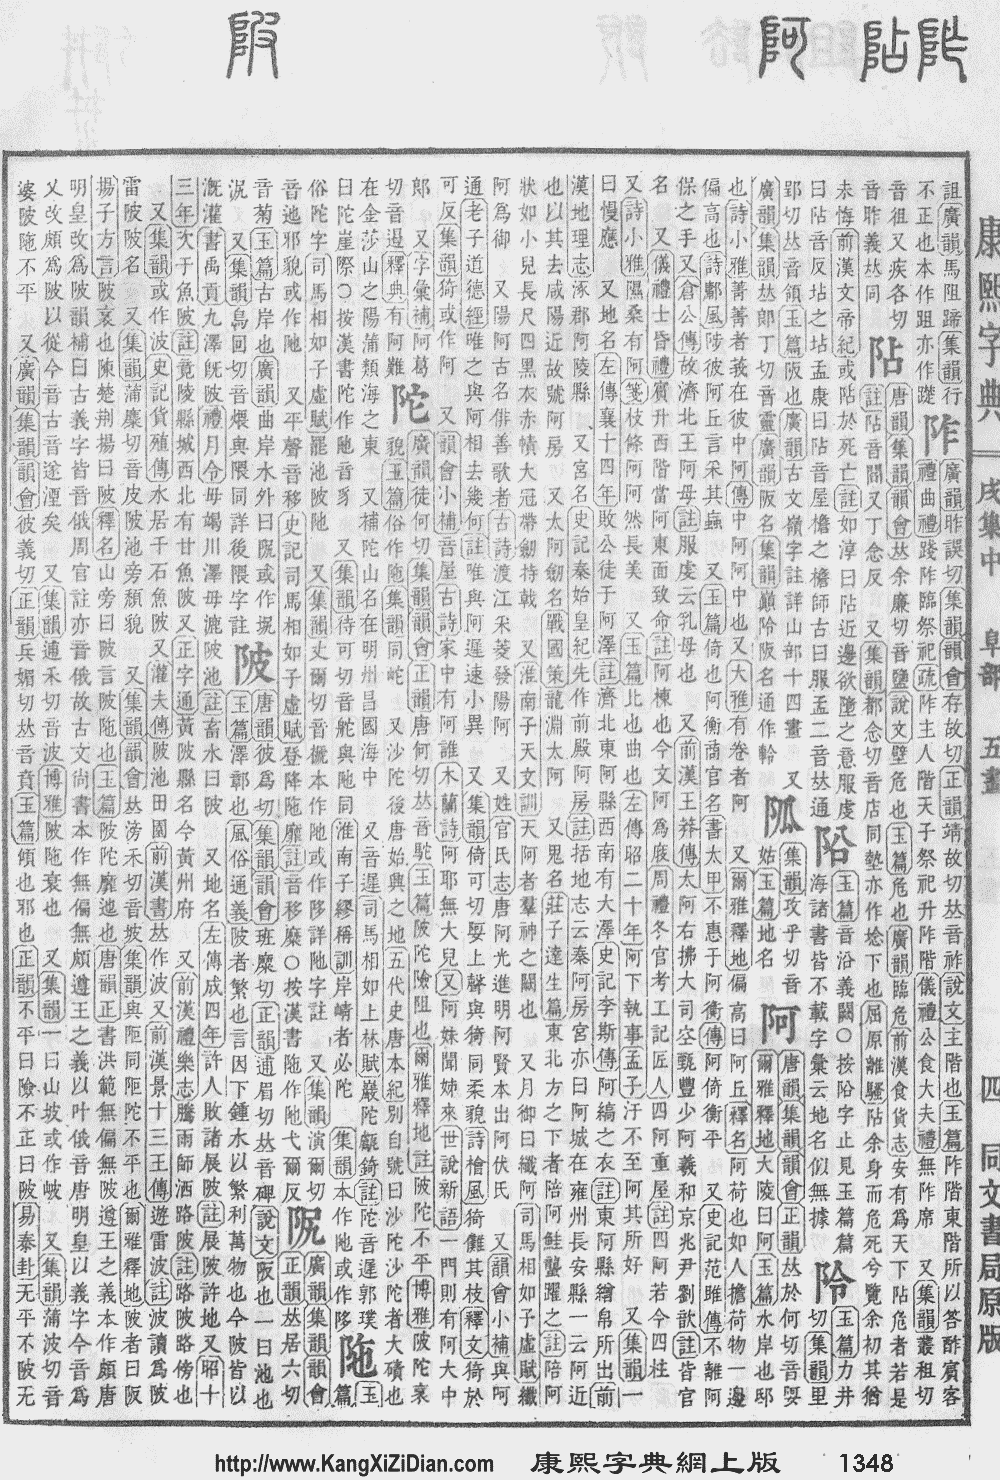 阼 阽 阿 陂
康熙字典 戌集中 阜部 五畫 四 同文書局原版
詛廣韻馬阻蹄集韻行不正也本作跙亦作𨅓 阼 廣韻昨誤切集韻韻會存故切正韻靖故切𠀤音祚說文主階也玉篇阼階東階所以答酢賓客
禮曲禮踐阼臨祭祀疏阼主人階天子祭祀升阼階儀禮公食大夫禮無阼席 又集韻叢租切
音祖又疾各切音昨義𠀤同 阽 唐韻集韻韻會𠀤余廉切音鹽說文壁危也玉篇危也廣韻臨危前漢食貨志安有為天下阽危者若是
註阽音閻又丁念反 又集韻都念切音店同墊亦作埝下也屈原離騷阽余身而危死兮覽余初其猶
未悔前漢文帝紀或阽於死亡註如淳曰阽近邊欲墮之意服虔曰阽音反坫之坫孟康曰阽音屋檐之檐師古曰服孟二音𠀤通
玉篇音沿義闕○按䧍字止見玉篇篇海諸書皆不載字彙云地名似無據
玉篇力井切集韻里郢切𠀤音領玉篇阪也廣韻古文嶺字註詳山部十四畫 又廣韻集韻𠀤郎丁切音靈廣韻阪名集韻巔阾阪名通作軨
集韻攻乎切音姑玉篇地名 阿 唐韻集韻韻會正韻𠀤於何切音娿爾雅釋地大陵曰阿玉篇水岸也邸也
詩小雅菁菁者莪在彼中阿傳中阿阿中也又大雅有卷者阿 又爾雅釋地偏高曰阿丘釋名阿荷也如人擔荷物一邊偏高也
詩鄘風陟彼阿丘言采其蝱 又玉篇倚也阿衡商官名書太甲不惠于阿衡傳阿倚衡平 又史記范雎傳不離阿保之手
又倉公傳故濟北王阿母註服虔云乳母也 又前漢王莽傳太阿右拂大司空甄豐少阿羲和京兆尹劉歆註皆官名
又儀禮士昏禮賓升西階當阿東面致命註阿棟也今文阿為庪周禮冬官考工記匠人四阿重屋註四阿若今四柱
又詩小雅隰桑有阿箋枝條阿阿然長美 又玉篇北也曲也左傳昭二十年阿下執事孟子汙不至阿其所好 又集韻一曰慢應
又地名左傳襄十四年敗公徒于阿澤註濟北東阿縣西南有大澤史記李斯傳阿縞之衣註東阿縣繒帛所出前漢地理志涿郡阿陵縣
又宮名史記秦始皇紀先作前殿阿房註括地志云秦阿房宮亦曰阿城在雍州長安縣一云阿近也以其去咸陽近故號阿房
又太阿劒名戰國策龍淵太阿 又鬼名莊子達生篇東北方之下者陪阿鮭蠪躍之註陪阿狀如小兒長尺四黑衣赤幘大冠帶劒持戟
又淮南子天文訓天阿者羣神之闕也 又月御曰纖阿司馬相如子虛賦纖阿為御
又陽阿古名俳善歌者古詩渡江采菱發陽阿 又姓官氏志唐阿光進明阿賢本出阿伏氏 又韻會小補與阿通
老子道德經唯之與阿相去幾何註唯與阿遲速小異 又集韻倚可切娿上聲與猗同柔貌詩檜風猗儺其枝釋文猗於可反集韻猗或作阿
又韻會小補音屋古詩家中有阿誰木蘭詩阿耶無大兒又阿妹聞姊來世說新語一門則有阿大中郎
又字彙補阿葛切音遏釋典有阿難 陀 廣韻徒何切集韻韻會正韻唐何切𠀤音駝玉篇陂陀險阻也爾雅釋地註陂陀不平博雅陂陀衺貌
玉篇俗作陁集韻同岮 又沙陀後唐始興之地五代史唐本紀別自號曰沙陀沙陀者大磧也在金莎山之陽蒲類海之東
又補陀山名在明州昌國海中 又音遲司馬相如上林賦巖陀甗錡註陀音遲郭璞曰陀崖際○按漢書陀作阤音豸
又集韻待可切音舵與阤同淮南子繆稱訓岸崝者必陀集韻本作阤或作陊 陁 玉篇俗陀字司馬相如子虛賦罷池陂阤
又集韻丈爾切音褫本作阤或作陊詳阤字註 又集韻演爾切音迤邪貌或作阤 又平聲音移史記司馬相如子虛賦登降陁靡註音移糜○按漢書陁作阤弋爾反
正韻𠀤居六切音菊玉篇古岸也廣韻曲岸水外曰阮或作坭 又集韻烏回切音煨與隈同詳後隈字註
陂 唐韻彼為切集韻韻會班糜切正韻逋眉切𠀤音碑說文阪也一曰池也玉篇澤鄣也風俗通義陂者繁也言因下鍾水以繁利萬物也今陂皆以漑灌
書禹貢九澤旣陂禮月令毋竭川澤毋漉陂池註畜水曰陂 又地名左傳成四年許人敗諸展陂註展陂許地又昭十三年次于魚陂註竟陵縣城西北有甘魚陂
又正字通黃陂縣名今黃州府 又前漢禮樂志騰雨師洒路陂註路陂路傍也
又集韻或作波史記貨殖傳水居千石魚陂又灌夫傳陂池田園前漢書𠀤作波又前漢景十三王傳遊雷波註波讀為陂雷陂陂名
又集韻蒲麋切音皮陂池旁頹貌 又集韻韻會𠀤滂禾切音坡集韻與陁同阤陀不平也爾雅釋地陂者曰阪揚子方言陂衺也陳楚荆揚曰陂
釋名山旁曰陂言陂陁也玉篇陂陀靡迤也唐韻正書洪範無偏無陂遵王之義本作頗唐明皇改為陂
韻補曰古義字皆音俄周官註亦音俄故古文尚書本作無偏無頗遵王之義以叶俄音唐明皇以義字今音為乂改頗為陂以從今音古音遂湮矣
又集韻逋禾切音波博雅陂陁衺也 又集韻一曰山坡或作岥 又集韻蒲波切音婆陂陁不平
又廣韻集韻韻會彼義切正韻兵媚切𠀤音賁玉篇傾也邪也正韻不平曰險不正曰陂易泰卦无平不陂无
http://www.KangXiZiDian.com 康熙字典網上版 1348